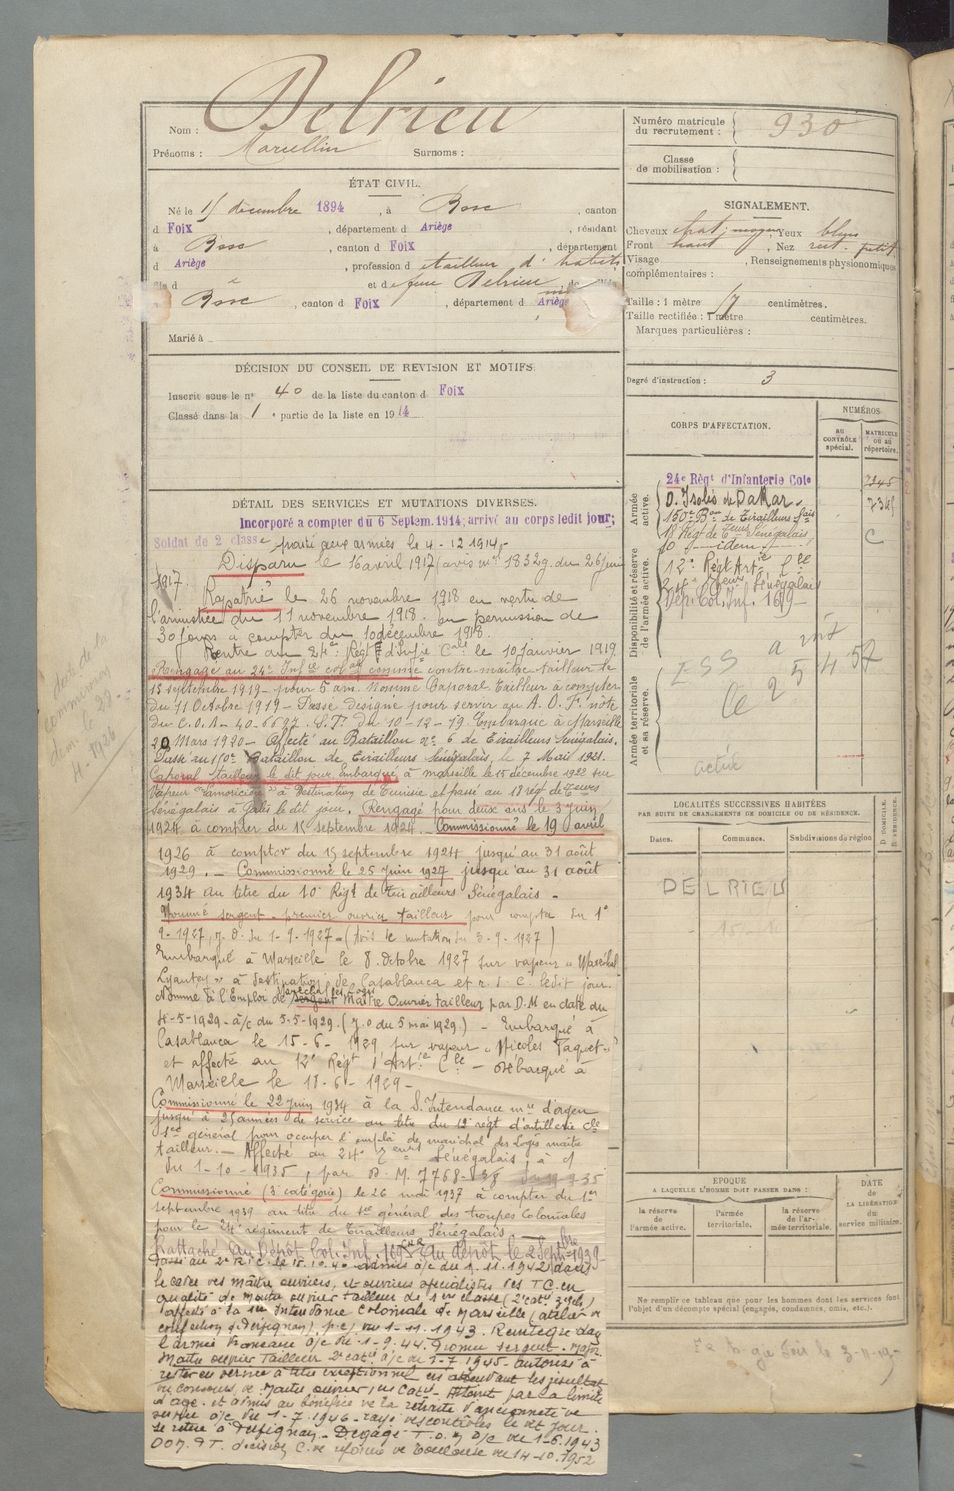 Nom : Delrieu
Prénoms : Marcellin Surnoms :
ÉTAT CIVIL.
Né le 15 décembre 1894, à Bosc, canton
d Foix, département d Ariège, résidant
à Bosc, canton d Foix, département
d Ariège, profession d tailleur d'habits
et de Delrieu
Bosc, canton d Foix, département d Ariège
Marié à
DÉCISION DU CONSEIL DE REVISION ET MOTIFS
Inscrit sous le n° 40 de la liste du canton d Foix
Classé dans la 1e partie de la liste en 1914
DÉTAIL DES SERVICES ET MUTATIONS DIVERSES.
Incorporé a compter du 6 Septem. 1914; arrivé au corps ledit jour;
Soldat de 2 classe parti aux armées le 4-12 1914,
Disparu le 16 avril 1917 (avis n° 18329 du 26 juin
1917.
Rapatrié le 26 novembre 1918 en vertu de
l'armistice du 11 novembre 1918. en permission de
30 jours à compter du 10 décembre 1918.
Rentré au 24e Régt d'Infie Cale le 10 janvier 1919
Rengagé au 24e Infie colale comme contre-maître tailleur le
15 septembre 1919 pour 5 ans. Nommé Caporal Tailleur à compter
du 11 Octobre 1919 - Passé désigné pour servir au A. O. F. note
du C.O.A- 40-6697. S.T. du 10-12-19. Embarqué à Marseille
20 Mars 1920 - Affecté au Bataillon n° 6 de Tirailleurs Sénégalais.
Passé au 150e Bataillon de Tirailleurs Sénégalais, le 7 Mai 1921.
Caporal tailleur le dit jour. Embarqué à marseille le 15 décembre 1922 sur
vapeur "Lamoricière" à destination de Tunisie et passé au 18 rég de Teurs
Sénégalais à Gabès le dit jour. Rengagé pour deux ans le 3 juin
1924 à compter du 15 septembre 1924. Commissionné le 19 avril
1926 à compter du 15 septembre 1924 jusqu'au 31 août
1929. - Commissionné le 25 juin 1927 jusqu'au 31 août
1934 au titre du 10e Régt de tirailleurs Sénégalais -
Nommé sergent premier ouvrier tailleur pour compter du 1er
9-1927, J. O. du 1-9-1927 - (Avis de mutation du 3-9-1927)
Embarqué à Marseille le 8 Octobre 1927 sur vapeur "Maréchal
Lyautey" à destination de Casablanca et r. d. c. ledit jour.
Nommé à l'Emploi de Maréchal des logis sergent Maître Ouvrier tailleur par D.M en date du
4-5-1929 - a/c du 5-5-1929. (J.O du 5 mai 1929.) - Embarqué à
Casablanca le 15-6-1929 sur vapeur "Nicolas Paquet"
et affecté au 12e Régt d'Artie Cle - Débarqué à
Marseille le 18-6-1929 -
Commissionné le 22 juin 1934 à la S. Intendance mre d'Agen
jusqu'à 25 années de service au titre du 12e régt d'artillerie cle
général pour occuper l'emploi de maréchal des logis maître
tailleur. - Affecté au 24e Teurs Sénégalais, à c/
du 1-10-1935, par D. M. 7768
Commissionné (3e catégorie) le 26 mai 1937 à compter du 1er
septembre 1939 au titre du général des troupes Coloniales
pour le 24e régiment de Tirailleurs Sénégalais
Rattaché au Dépôt Col. Inf. 169 au dépôt le 2 Septbre 1939
Passé au 2e R.I.C. le 15.10.40 admis a/c du 1.11.1942 dans
le cadre des maîtres ouvriers, et ouvriers spécialistes des T.C. en
qualité de maître ouvrier tailleur de 1ere classe (2e cat.
affecté à la Intendance Coloniale de Marseille (atelier de
confection de Perpignan) p.c. du 1-11-1943. Réintégré dans
l'armée Française a/c du 1-9-44. Promu sergent-Major
Maître ouvrier Tailleur 2e cat. a/c du 1-7 1945. autorisé à
rester en service à titre exceptionnel en attendant les résultats
du concours de Maître ouvrier. Atteint par la limite
d'age. et admis au bénéfice de la retraite d'ancienneté de
service a/c du 1-7-1946 - rayé des contrôles le dit jour.
Se retire à Perpignan - Dégagé T.O. M a/c du 1-6-1943
décision C. de réforme de Toulouse du 14-10-1952
Numéro matricule du recrutement : 930
Classe de mobilisation :
SIGNALEMENT.
Cheveux chat. moyen, Yeux bleus
Front haut, Nez rect. petit
Visage , Renseignements physionomiques
complémentaires :
Taille : 1 mètre 57 centimètres.
Taille rectifiée : 1 mètre centimètres.
Marques particulières :
Degré d'instruction : 3
CORPS D'AFFECTATION.
NUMÉROS
AU CONTRÔLE spécial.
MATRICULE OU AU répertoire.
Armée active.
24e Régt d'Infanterie Cole 7345
D. Isolés de Dakar 7345
150e Bon de Tirailleurs
18 Régt de Teurs Sénégalais C
10 - idem -
Disponibilité et réserve de l'armée active.
12e Régt Artie Cle
24e Teurs Sénégalais
Dép. Col. Inf. 169
Armée territoriale et sa réserve.
LOCALITÉS SUCCESSIVES HABITÉES
PAR SUITE DE CHANGEMENTS DE DOMICILE OU DE RÉSIDENCE.
Dates. Communes. Subdivisions de région
D. DOMICILE. R. RÉSIDENCE.
DELRIEU
EPOQUE
A LAQUELLE L'HOMME DOIT PASSER DANS :
DATE de LA LIBÉRATION du service militaire.
la réserve de l'armée active.
l'armée territoriale.
la réserve de l'armée territoriale.
Ne remplir ce tableau que pour les hommes dont les services font
l'objet d'un décompte spécial (engagés, condamnés, omis, etc.).